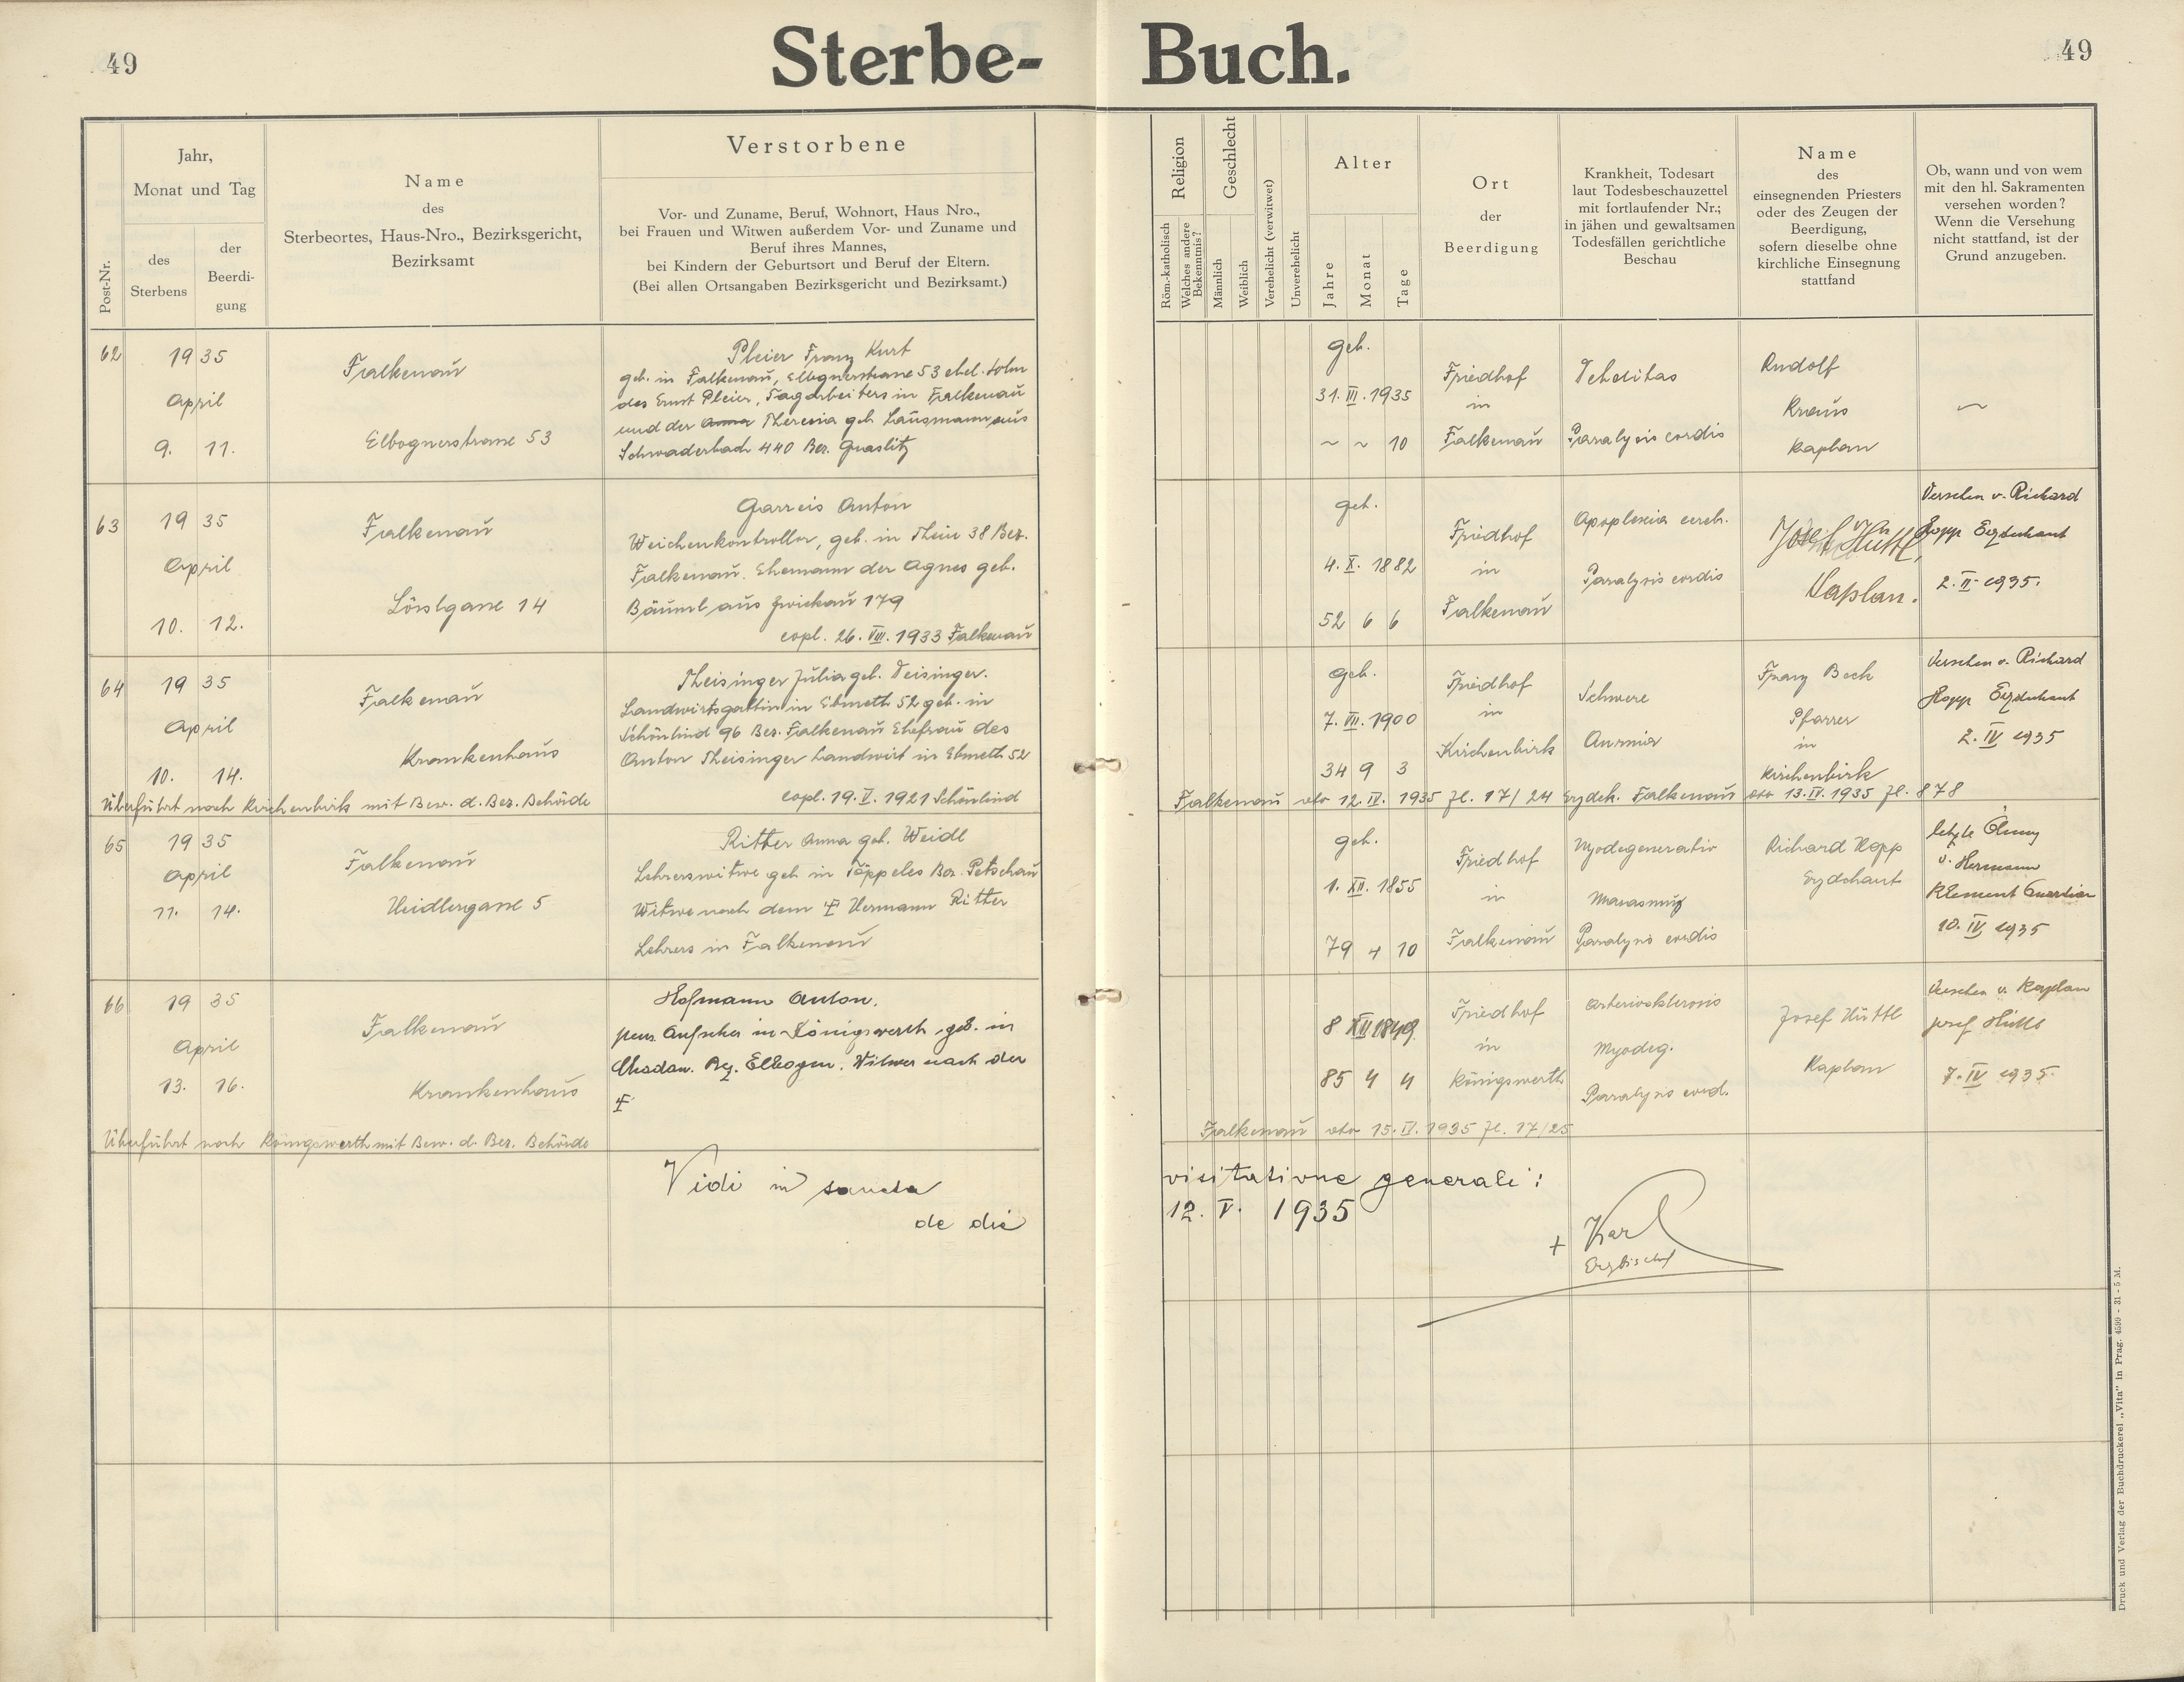 49
Sterbe-Buch.
49
Post-Nr.
Jahr,
Monat und Tag
des
Sterbens
der
Beerdi-
gung
Name
des
Sterbeortes, Haus-Nro., Bezirksgericht,
Bezirksamt
Verstorbene
Vor- und Zuname, Beruf, Wohnort, Haus Nro.,
bei Frauen und Witwen außerdem Vor- und Zuname und
Beruf ihres Mannes,
bei Kindern der Geburtsort und Beruf der Eltern.
(Bei allen Ortsangaben Bezirksgericht und Bezirksamt.)
Religion
Röm.-katholisch
Welches andere
Bekenntnis?
Geschlecht
Männlich
Weiblich
Verehelicht (verwitwet)
Unverehelicht
Alter
Jahre
Monat
Tage
Ort
der
Beerdigung
Krankheit, Todesart
laut Todesbeschauzettel
mit fortlaufender Nr.;
in jähen und gewaltsamen
Todesfällen gerichtliche
Beschau
Name
des
einsegnenden Priesters
oder des Zeugen der
Beerdigung,
sofern dieselbe ohne
kirchliche Einsegnung
stattfand
Ob, wann und von wem
mit den hl. Sakramenten
versehen worden?
Wenn die Versehung
nicht stattfand, ist der
Grund anzugeben.
62
1935
April
9. 11.
Falkenau
Elbognerstrasse 53
Pleier Franz Kurt
geb. in Falkenau, Elbognerstrasse 53 ehel. Sohn
des Ernst Pleier, Tagarbeiters in Falkenau
und der Anna Theresia geb. Lausmann aus
Schwaderbach 440 Bez. Graslitz
geb.
31. III. 1935
~ ~ 10
Friedhof
in
Falkenau
Debilitas
Paralysis cordis
Rudolf
Kraus
Kaplan
~
63
1935
April
10. 12.
Falkenau
Lösslgasse 14
Garreis Anton
Weichenkontrollor, geb. in Thein 38 Bez.
Falkenau. Ehemann der Agnes geb.
Bäuml aus Zwickau 179
copl. 26. VIII. 1933 Falkenau
geb.
4. X. 1882
52 6 6
Friedhof
in
Falkenau
Apoplexia cereb.
Paralysis cordis
Josef Hüttl,
Kaplan.
Versehen v. Richard
Hopp Erzdechant
2. II. 1935.
64
1935
April
10. 14.
Falkenau
Krankenhaus
Theisinger Julia geb. Deisinger.
Landwirtsgattin in Ebmeth 52 geb. in
Schönlind 96 Bez. Falkenau Ehefrau des
Anton Theisinger Landwirt in Ebmeth 52
copl. 19. V. 1921 Schönlind
geb.
7. VII. 1900
34 9 3
Friedhof
in
Kirchenbirk
Schwere
Anämie
Franz Beck
Pfarrer
in
Kirchenbirk
Versehen v. Richard
Hopp Erzdechant
2. IV 1935
Überführt nach Kirchenbirk mit Bew. d. Bez. Behörde Falkenau dto 12. IV. 1935 Zl. 17/24 Erzdek. Falkenau dto 13. IV. 1935 Zl. 878
65
1935
April
11. 14.
Falkenau
Heidlergasse 5
Ritter Anna geb. Weidl
Lehrerswitwe geb. in Töppeles Bez. Petschau
Witwe nach dem † Hermann Ritter
Lehrers in Falkenau
geb.
1. XII. 1855
79 4 10
Friedhof
in
Falkenau
Myodegeneratio
Marasmus
Paralysis cordis
Richard Hopp
Erzdechant
letzte Ölung
v. Hermann
Klement Guardian
10. IV 1935
66
1935
April
13. 16.
Falkenau
Krankenhaus
Hofmann Anton,
pens. Aufseher in Königswerth, geb. in
Chodau. Bez. Elbogen. Witwer nach der
†
8 XII 1849
85 4 4
Friedhof
in
Königswerth
Arteriosklerosis
Myodeg.
Paralysis cord.
Josef Hüttl
Kaplan
Versehen v. Kaplan
Josef Hüttl
7. IV 1935.
Überführt nach Königswerth mit Bew. d. Bez. Behörde Falkenau dto 15. IV. 1935 Zl. 17/25
Vidi in sancta visitatione generali:
de die 12. V. 1935
+ Karl
Erzbischof
Druck und Verlag der Buchdruckerei „Vita" in Prag. 4599 - 31 - 5 M.